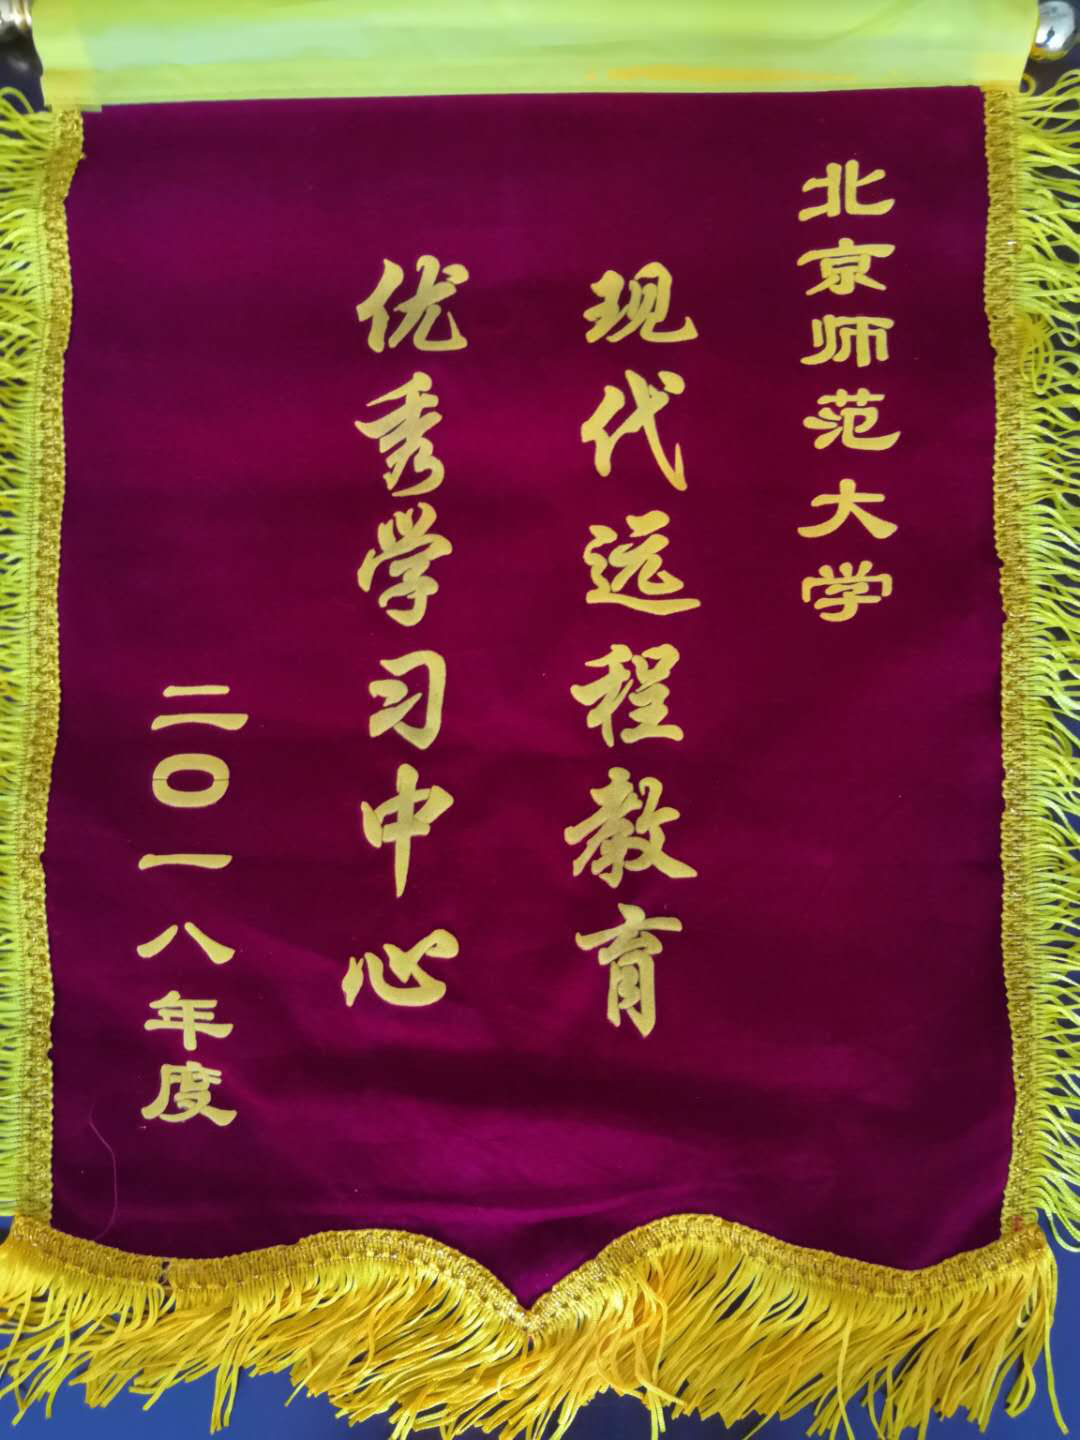 北京师范大学
现代远程教育
优秀学习中心
二〇一八年度